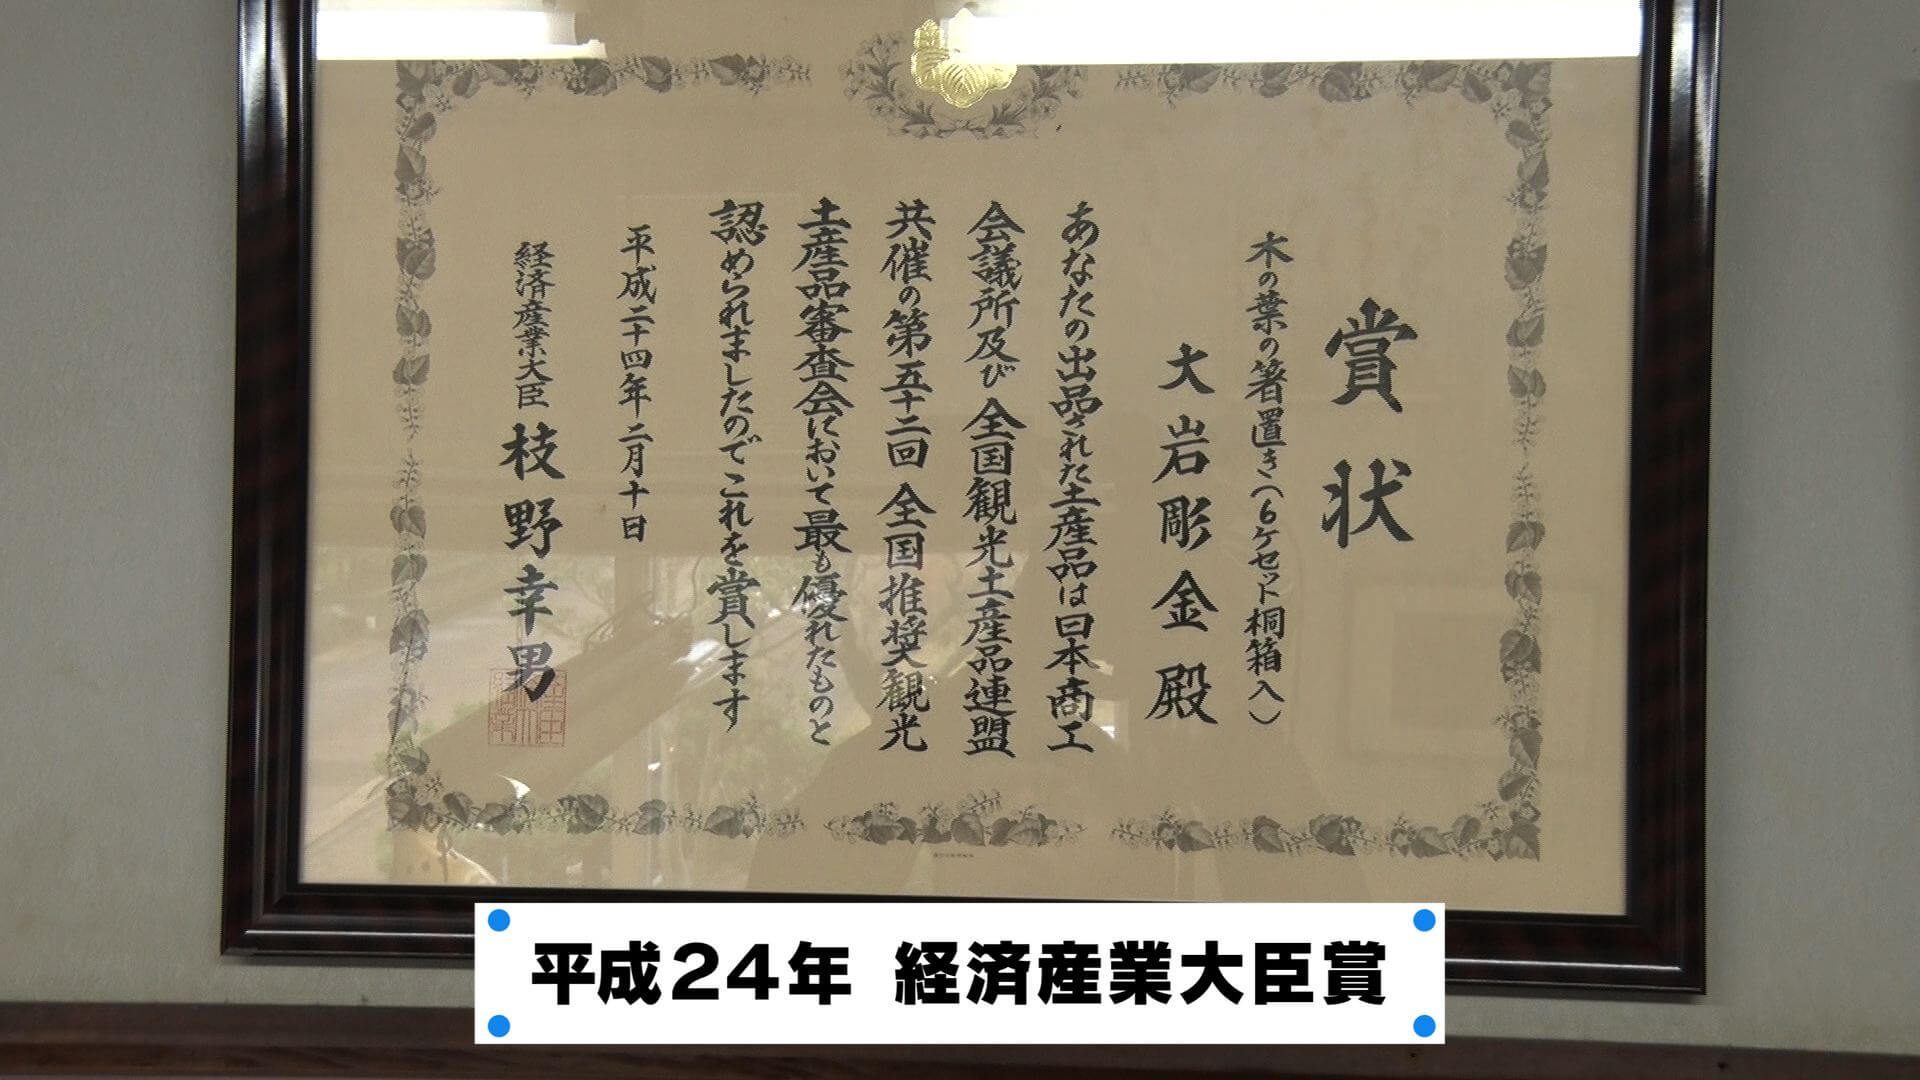 賞状
木の葉の箸置き(6ケセット桐箱入)
大岩彫金殿
あなたの出品された土産品は日本商工
会議所及び全国観光土産品連盟
共催の第五十二回全国推奨観光
土産品審査会において最も優れたものと
認められましたのでこれを賞します
平成二十四年二月十日
経済産業大臣 枝野幸男
平成24年 経済産業大臣賞